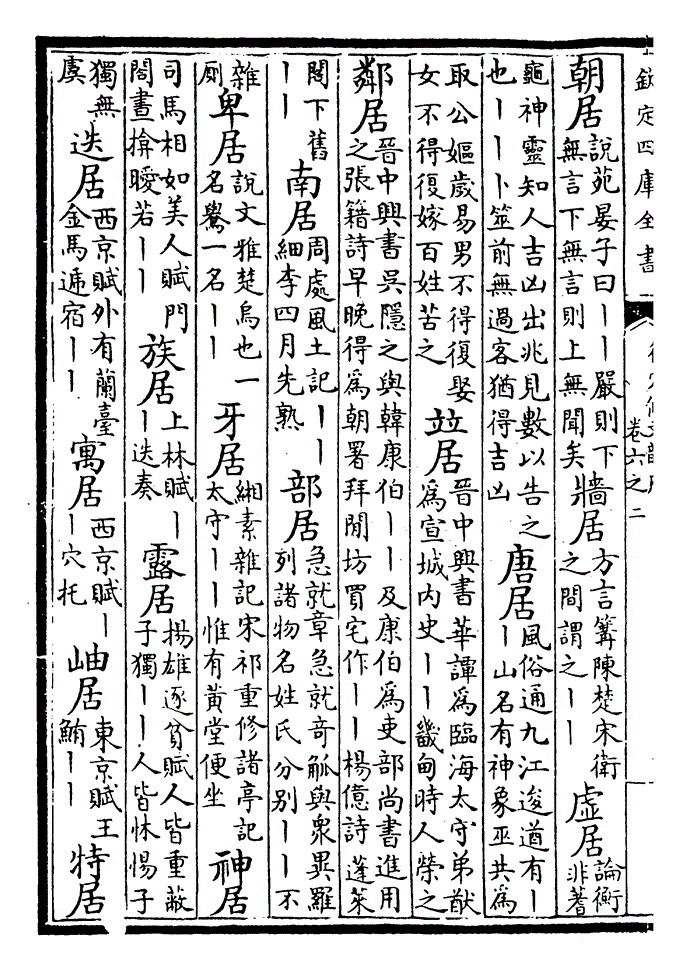 欽定四庫全書
卷六之二
朝居說苑晏子曰丨丨嚴則下無言下無言則上無聞矣牆居方言篝陳楚宋衛之間謂之丨丨虛居論衡非蓍
龜神靈知人吉凶出兆見數以告之也丨丨卜筮前無過客猶得吉凶唐居風俗通九江逡遒有丨丨山名有神象巫共為
取公嫗歲易男不得復娶女不得復嫁百姓苦之並居晉中興書華譚為臨海太守弟猷為宣城内史丨丨畿甸時人榮之
鄰居晉中興書吳隱之與韓康伯丨丨及康伯為吏部尚書進用之張籍詩早晚得為朝署拜閒坊買宅作丨丨楊億詩蓬萊
閣下舊丨丨南居周處風土記丨丨細李四月先熟部居急就章急就奇觚與衆異羅列諸物名姓氏分别丨丨不
雜厠卑居說文雅楚烏也一名鸒一名丨丨牙居緗素雜記宋祁重修諸亭記太守丨丨惟有黃堂便坐神居
司馬相如美人賦門閤晝揜曖若丨丨族居上林賦丨丨迭奏露居揚雄逐貧賦人皆重蔽子獨丨丨人皆怵惕子
獨無虞迭居西京賦外有蘭臺金馬遞宿丨丨寓居西京賦丨丨穴托岫居東京賦王鮪丨丨特居